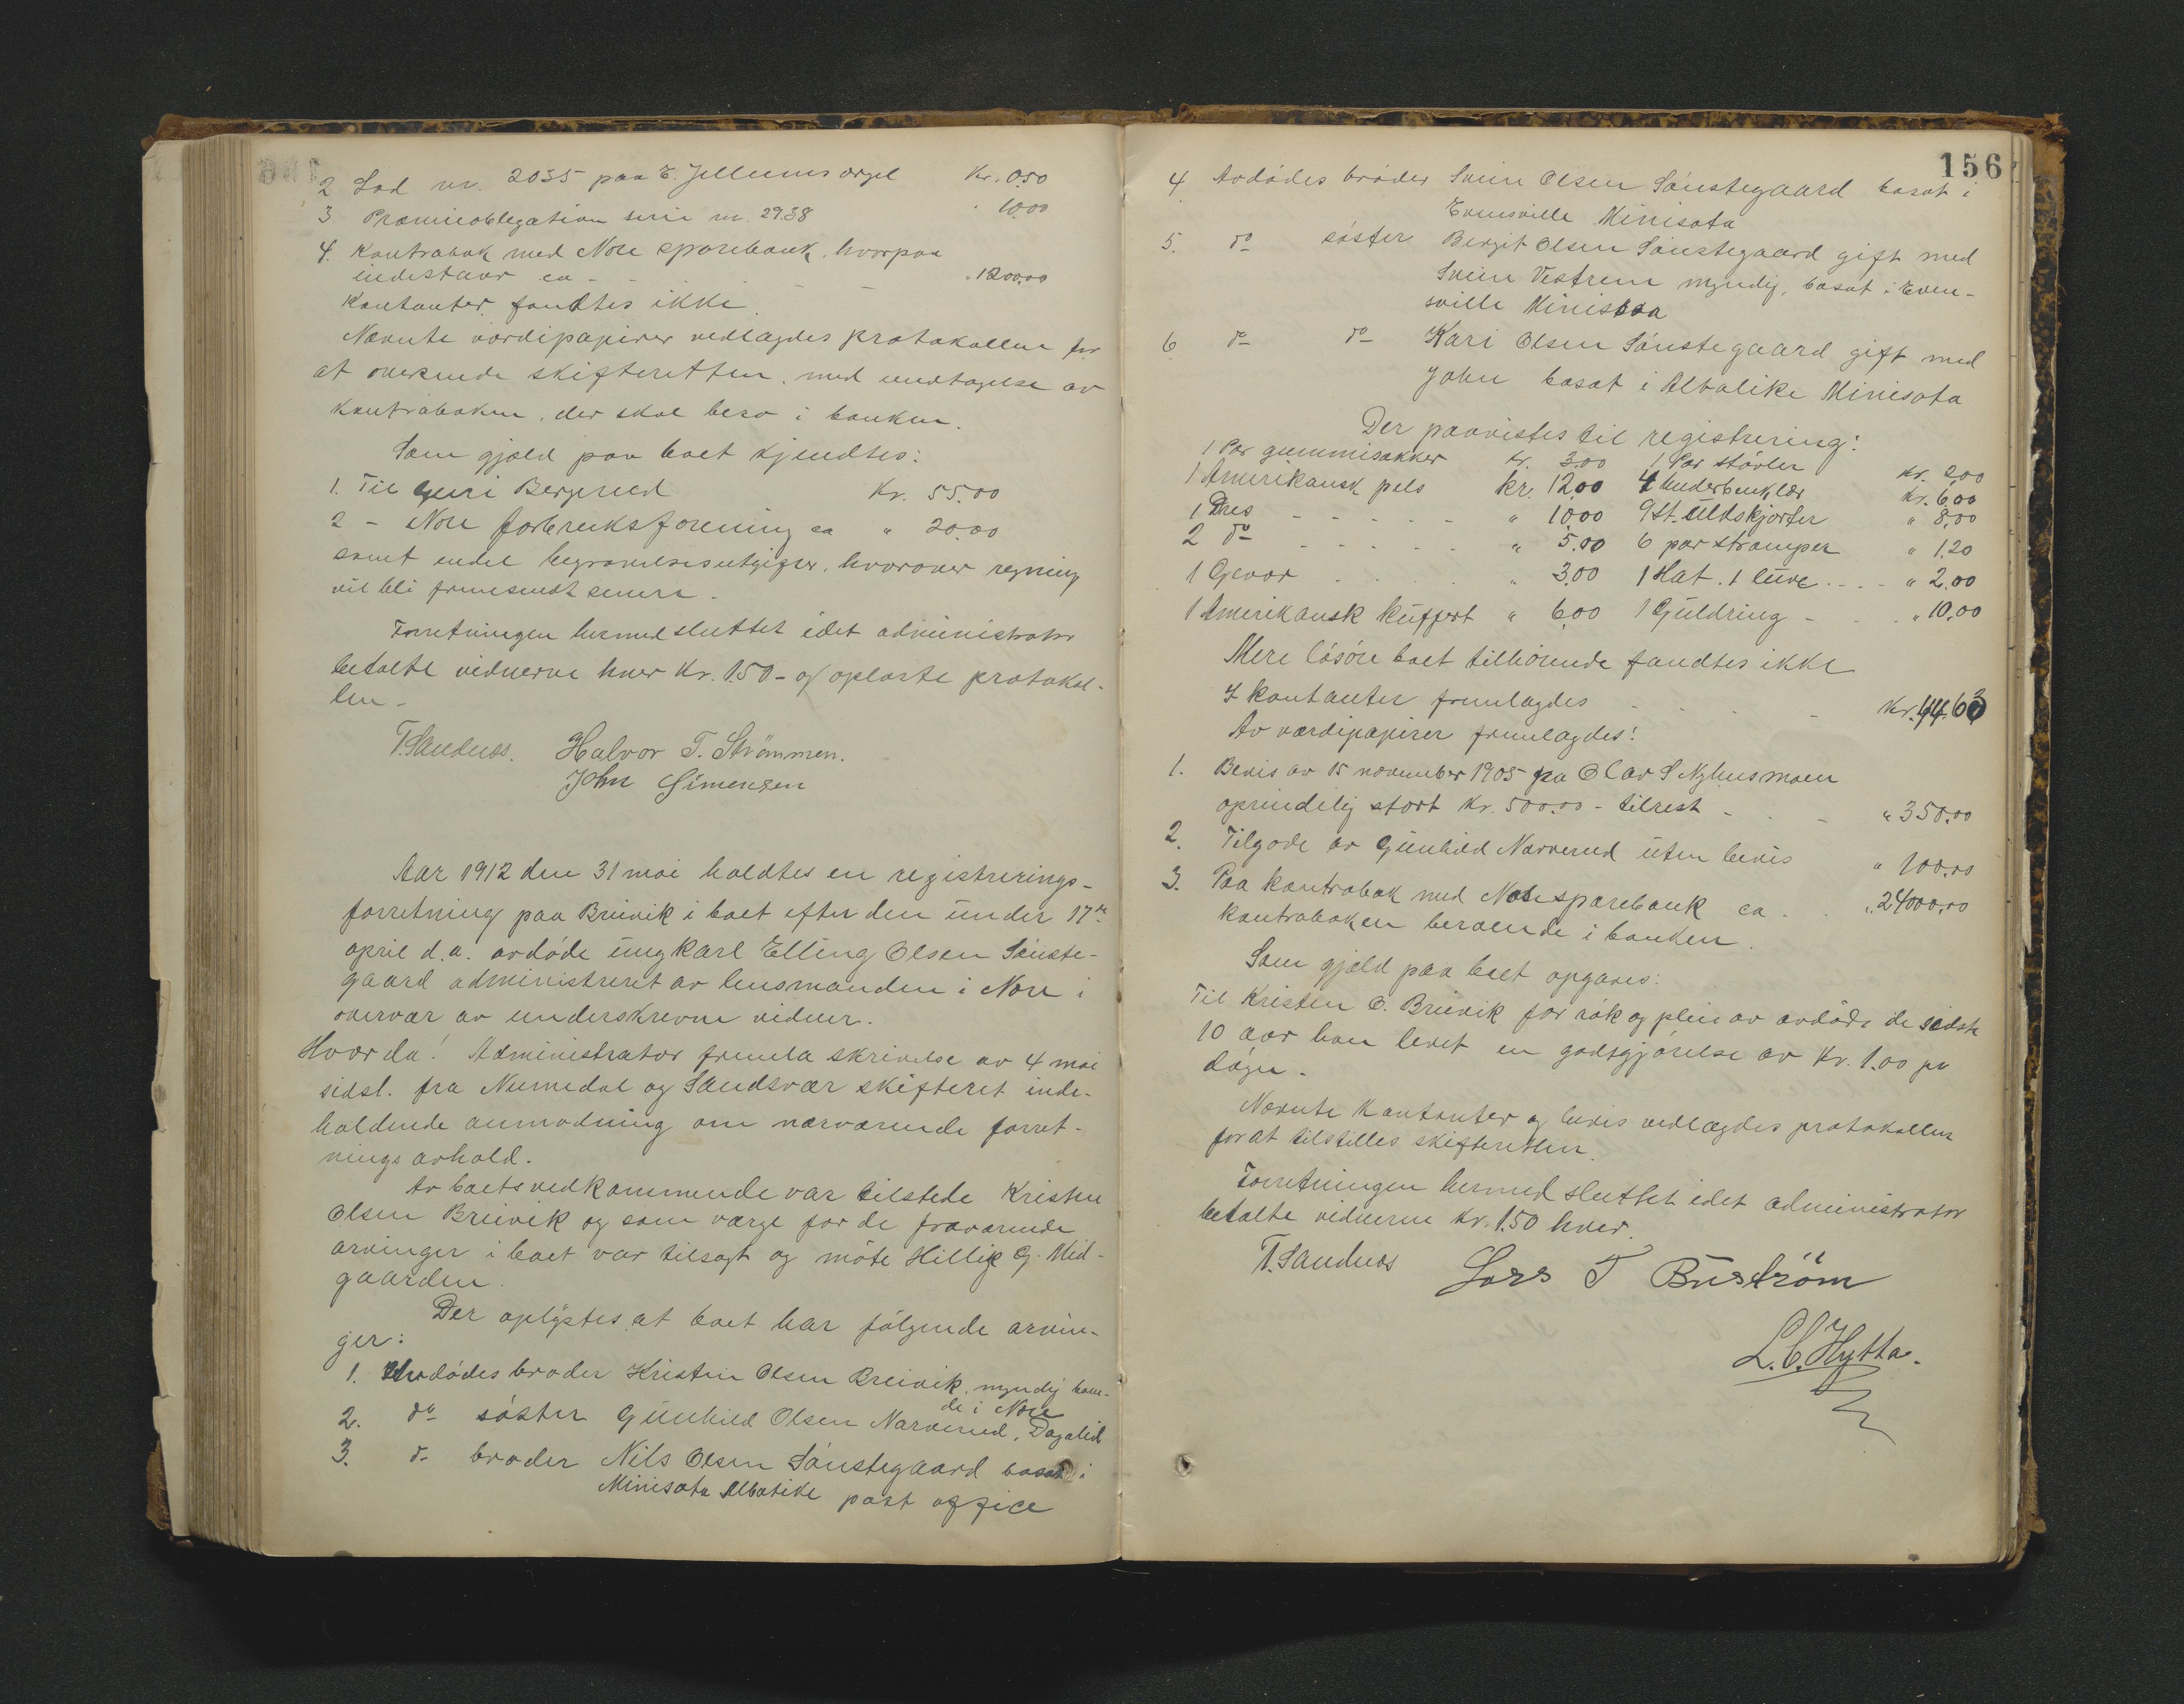 2 Lod nr. 2035 paa E. Jellums orgel Kr. 0.50
3 Præmieobligation serie nr. 2938 " 10.00
4. Kontrabok med Nore sparebank, hvorpaa
indestaar ca - - - " 1200.00
Kontanter fandtes ikke.
Nævnte værdipapirer vedlagdes protokollen for
at oversende skifteretten, med undtagelse av
kontraboken, der skal bero i banken.
Som gjæld paa boet kjendtes:
1. Til Guri Bergerud Kr. 55.00
2 - Nore forbruksforening ca " 20.00
samt endel begravelsesutgifter, hvorover regning
vil bli fremsendt senere.
Forretningen hermed sluttet idet administrator
betalte vidnerne hver Kr. 1.50 - og oplæste protokol-
len -
T. Sandnes. Halvor T. Strömmen.
John Simensen
Aar 1912 den 31 mai holdtes en registrerings-
forretning paa Breivik i boet efter den under 17de
april d.a. avdöde ungkarl Elling Olsen Sönste-
gaard administreret av lensmanden i Nore i
overvær av underskrevne vidner.
Hvorda! Administrator fremla skrivelse av 4 mai
sidsl. fra Numedal og Sandsvær skifteret inde-
holdende anmodning om nærværende forret-
nings avhold.
Av boets vedkommende var tilstede Kristen
Olsen Breivik og som værge for de fraværende
arvinger i boet var tilsagt og möte Hellik G. Mid-
gaarden.
Der oplystes at boet har fölgende arvin-
ger:
1. Avdödes broder Kristen Olsen Breivik, myndig boen-
de i Nore
2. do söster Gunhild Olsen Narverud, Dagalid
3. do broder Nils Olsen Sönstegaard bosat i
Minisota Albatike post office
156
4 Avdödes bröder Svein Olsen Sönstegaard bosat i
Evensville Minisota
5. do söster Bergit Olsen Sönstegaard gift med
Svein Vestrem myndig, bosat i Even-
sville Minisota
6 do do Kari Olsen Sönstegaard gift med
John bosat i Albalike Minisota
Der paavistes til registrering:
1 Par gummisokker Kr. 3.00 1 Par stövler Kr. 2.00
1 Amerikansk pels Kr. 12.00 4 Underbenklær Kr. 6.00
1 Dres - - - - - " 10.00 9 St. Uldskjorter " 8.00
2 do - - - - - " 5.00 6 par strømper " 1.20
1 Gevær . . . . " 3.00 1 Hat. 1 lue . - - " 2.00
1 Amerikansk kuffert " 6.00 1 Guldring - - . " 10.00
Mere lösöre boet tilhörende fandtes ikke
I kontanter fremlagdes - - - - Kr. 44.63
Av værdipapirer fremlagdes:
1. Bevis av 15 november 1905 fra Olav S Nyhusmoen
oprindelig stort Kr. 500.00 - tilrest - - - " 350.00
2. Tilgode av Gunhild Narverud uten bevis " 100.00
3. Paa kontrabok med Nore sparebank ca . . " 2400.00
kontraboken beroende i banken.
Som gjæld paa boet opgaves:
Til Kristen O. Breivik for rök og pleie av avdöde de sidste
10 aar han levet en godtgjörelse av Kr. 1.00 pr
dögn.
Nævnte kontanter og bevis vedlagdes protokollen
for at tilstilles skifteretten.
Forretningen hermed sluttet idet administrator
betalte vidnerne Kr. 1.50 hver.
T. Sandnes Lars T Buström
L. C. Hytta.